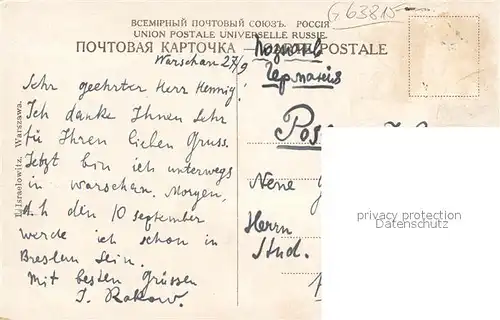 ВСЕМІРНЫЙ ПОЧТОВЫЙ СОЮЗЪ. РОССІЯ
UNION POSTALE UNIVERSELLE RUSSIE.
ПОЧТОВАЯ КАРТОЧКА POSTALE
63815
Warschau 27/9
Sehr geehrter Herr Hennig!
Ich danke Ihnen sehr
für Ihren lieben Gruss.
Jetzt bin ich unterwegs
in Warschau. Morgen,
d.h den 10 september
werde ich schon in
Breslau sein.
Mit besten Grüssen
J. Rakow.
Германія
Pos
Neue
Herrn
Stud.
Israelowitz, Warszawa.
privacy protection
Datenschutz